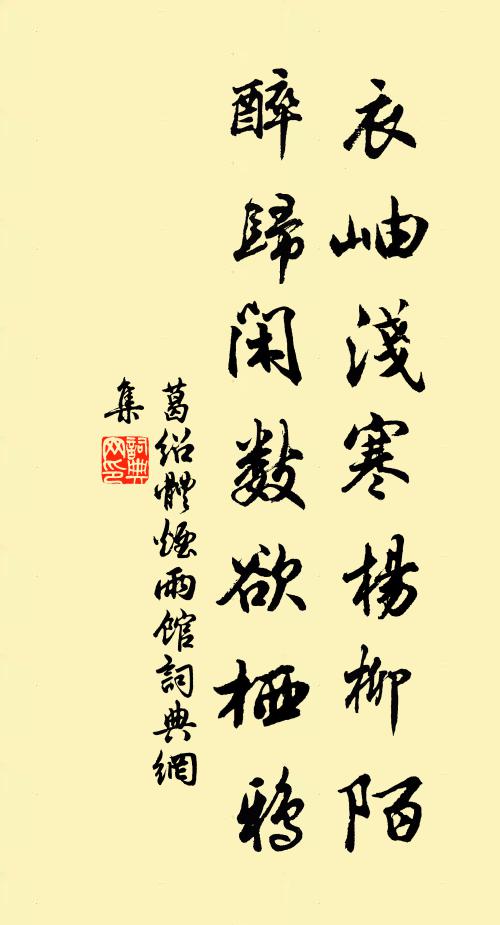 衣岫淺寒楊柳陌
醉歸閑數欲栖鴉
葛紹體煙雨館詞典網
集
詞典
网印